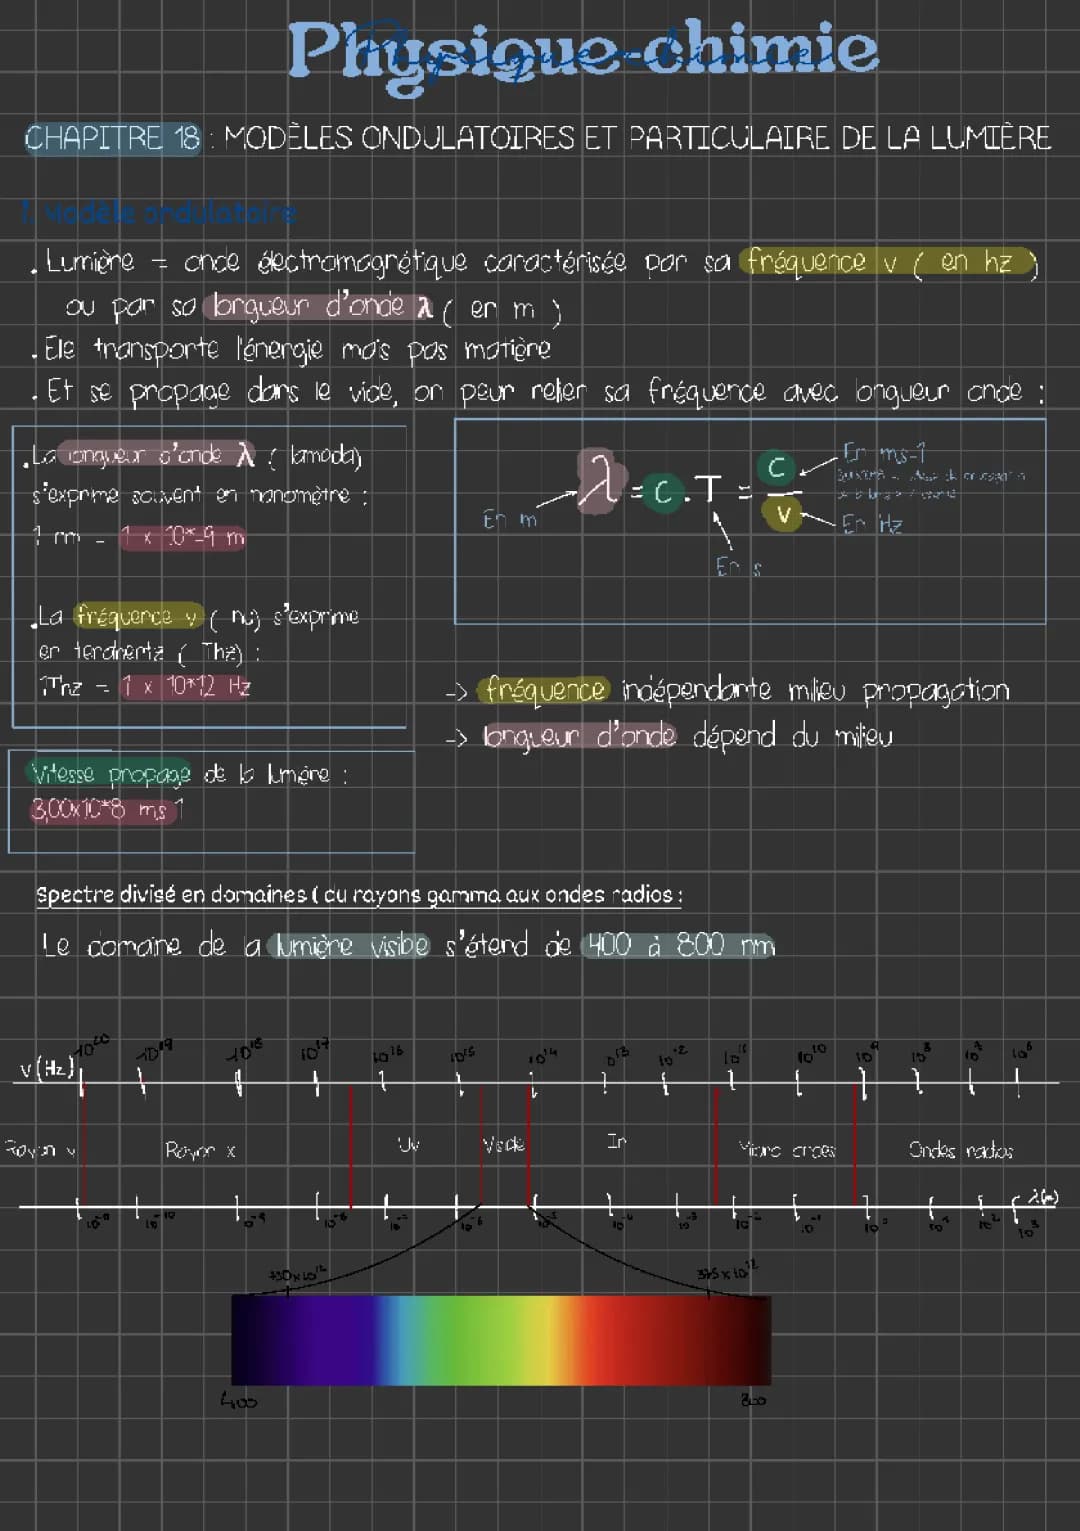 Physique-chimie
CHAPITRE 18 : MODÈLES ONDULATOIRES ET PARTICULAIRE DE LA LUMIÈRE
1. Modèle ondulatoire
. Lumière = onde électromagnétique caractérisée par sa fréquence v ( en hz )
ou par sa longueur d'onde λ ( en m )
. Elle transporte l'énergie mais pas matière
. Et se propage dans le vide, on peur relier sa fréquence avec longueur onde :
. La longueur d'onde λ ( lamoda)
s'exprime souvent en nanomètre :
1 nm = 1 x 10*-9 m
. La fréquence v ( nu) s'exprime
en terahertz ( Thz) :
1Thz = 1 x 10*12 Hz
λ = c . T = c / v
En m
En s
En ms-1
En Hz
-> fréquence indépendante milieu propagation
-> longueur d'onde dépend du milieu
Vitesse propage de la lumière :
3,00x10*8 ms 1
Spectre divisé en domaines ( du rayons gamma aux ondes radios :
Le domaine de la lumière visible s'étend de 400 à 800 nm
v (Hz) 10²⁰ 10¹⁹ 10¹⁸ 10¹⁷ 10¹⁶ 10¹⁵ 10¹⁴ 10¹³ 10¹² 10¹¹ 10¹⁰ 10⁹ 10⁸ 10⁷ 10⁶
Rayon γ Rayon x Uv Visible Ir Micro ondes Ondes radios
λ(m)
10⁻¹⁰ 10⁻⁹ 10⁻⁸ 10⁻⁶ 10⁻⁵ 10⁻⁴ 10⁻³ 10⁻² 10⁻¹ 10⁰ 10¹ 10² 10³
375 x 10¹²
400 800